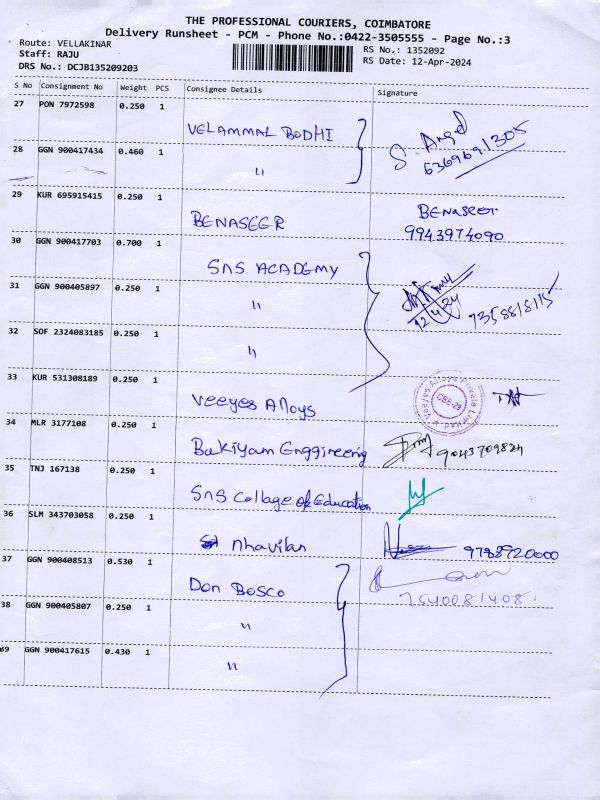 THE PROFESSIONAL COURIERS, COIMBATORE
Delivery Runsheet - PCM - Phone No.:0422-3505555 - Page No.:3
Route: VELLAKINAR
RS No.: 1352092
Staff: RAJU
RS Date: 12-Apr-2024
DRS No.: DCJB135209203
S No Consignment No Weight PCS Consignee Details Signature
27 PON 7972598 0.250 1
VELAMMAL BODHI
S. Angel
6369691305
28 GGN 900417434 0.460 1
"
29 KUR 695915415 0.250 1
BENASEER
BENASEER
9943974090
30 GGN 900417703 0.700 1
SNS ACADEMY
12.4.24
31 GGN 900405897 0.250 1
"
32 SOF 2324083185 0.250 1
"
33 KUR 531308189 0.250 1
Veeyes Alloys
CBE-29
34 MLR 3177108 0.250 1
Bakiyam Enggineering
9043709824
35 TNJ 167138 0.250 1
SNS Collage of Education
36 SLM 343703058 0.250 1
nhavilan
37 GGN 900408513 0.530 1
Don Bosco
7540081408
38 GGN 900405807 0.250 1
"
39 GGN 900417615 0.430 1
"